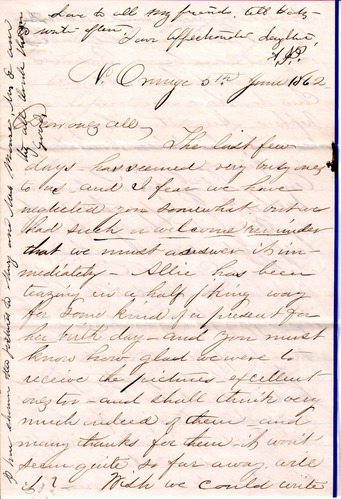 Love to all my friends, tell
to write often,
Your affectionate daughter,
N. Orange 5th June 1862
Dear ones all,
The last few
days has seemed very busy ones
to us, and I fear we have
neglected you somewhat but we
had such a welcome reminder
that we must answer it im-
mediately - Allie has been
teazing in a half joking way
for some kind of a present for
her birth day - and you must
know how glad we were to
receive the pictures - excellent
ones too - and shall think very
much indeed of them - and
many thanks for them - it won't
seem quite so far away, will
it? - Wish we could write
shown the pictures to